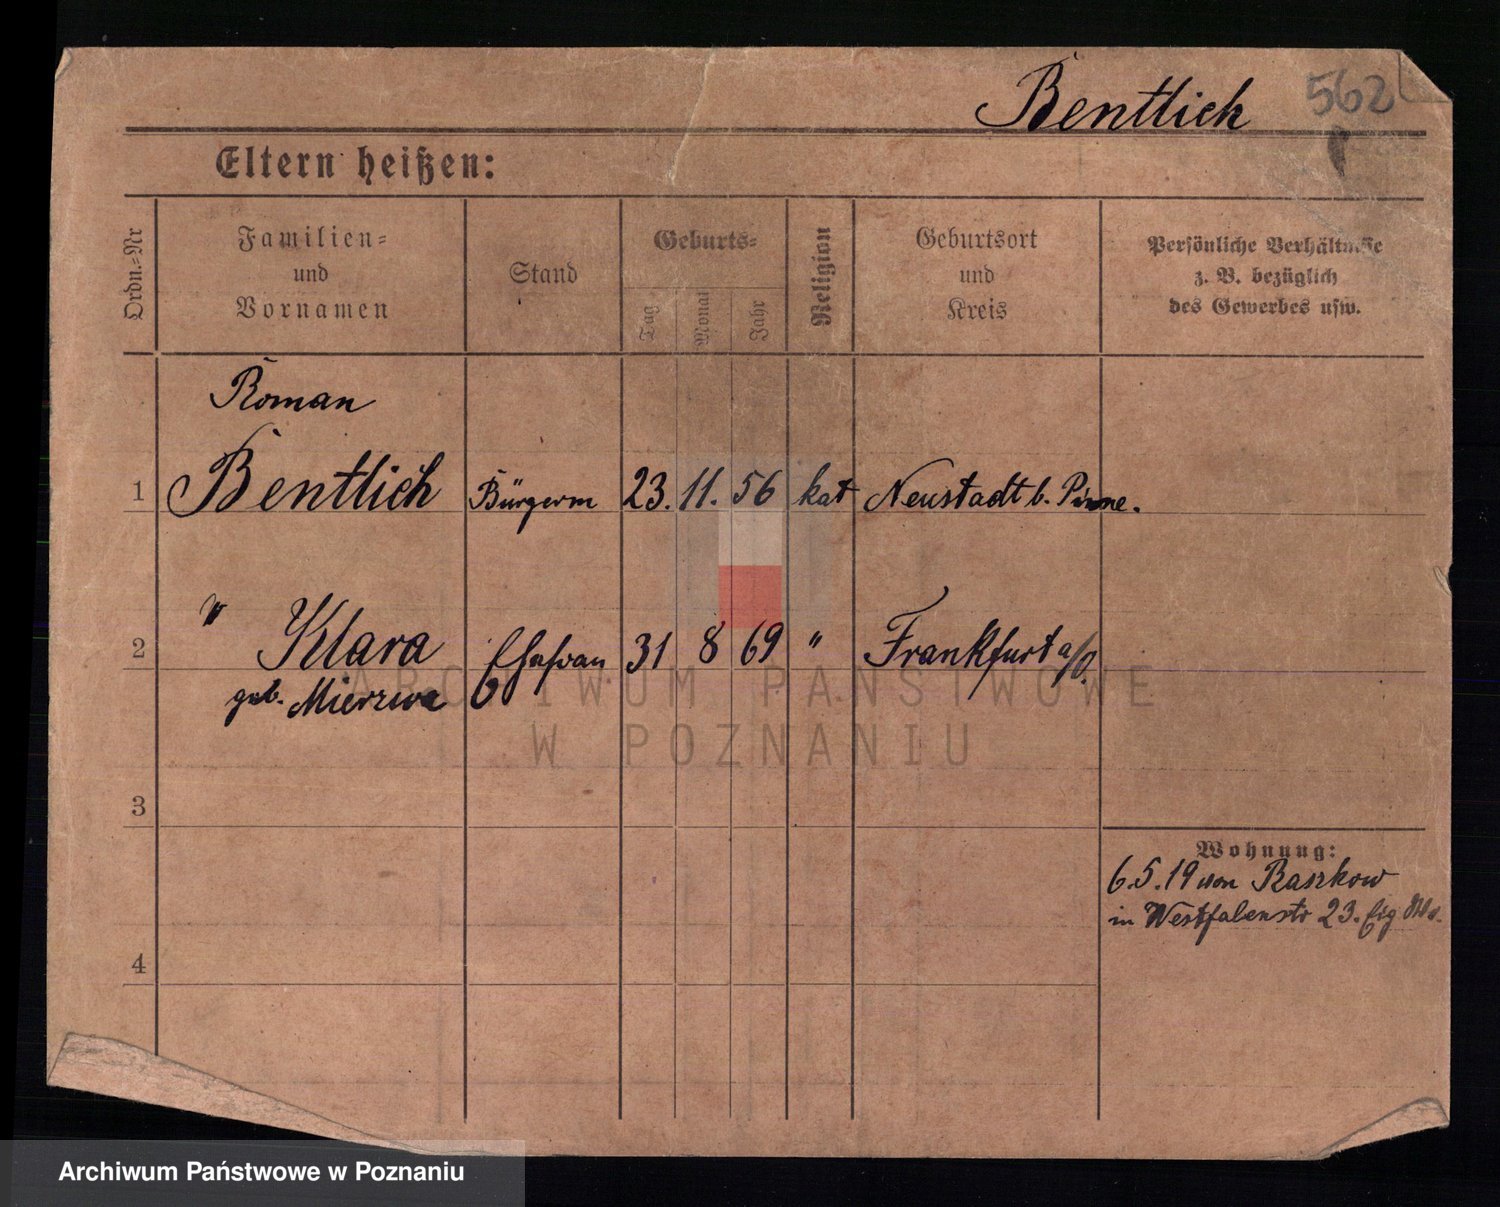 Bentlich 562
Eltern heißen:
Ordn.-Nr
Familien-
und
Vornamen
Stand
Geburts-
Tag
Monat
Jahr
Religion
Geburtsort
und
Kreis
Persönliche Verhältnisse
z. B. bezüglich
des Gewerbes usw.
Roman
1 Bentlich Bürgerm 23. 11. 56 kat Neustadt b. Pinne.
2 " Klara Ehefrau 31 8 69 " Frankfurt a/O.
geb. Mierzwa
ARCHIWUM PAŃSTWOWE
W POZNANIU
3
Wohnung:
6.5.19 von Raszkow
in Westfalenstr 23. Eig
4
Archiwum Państwowe w Poznaniu